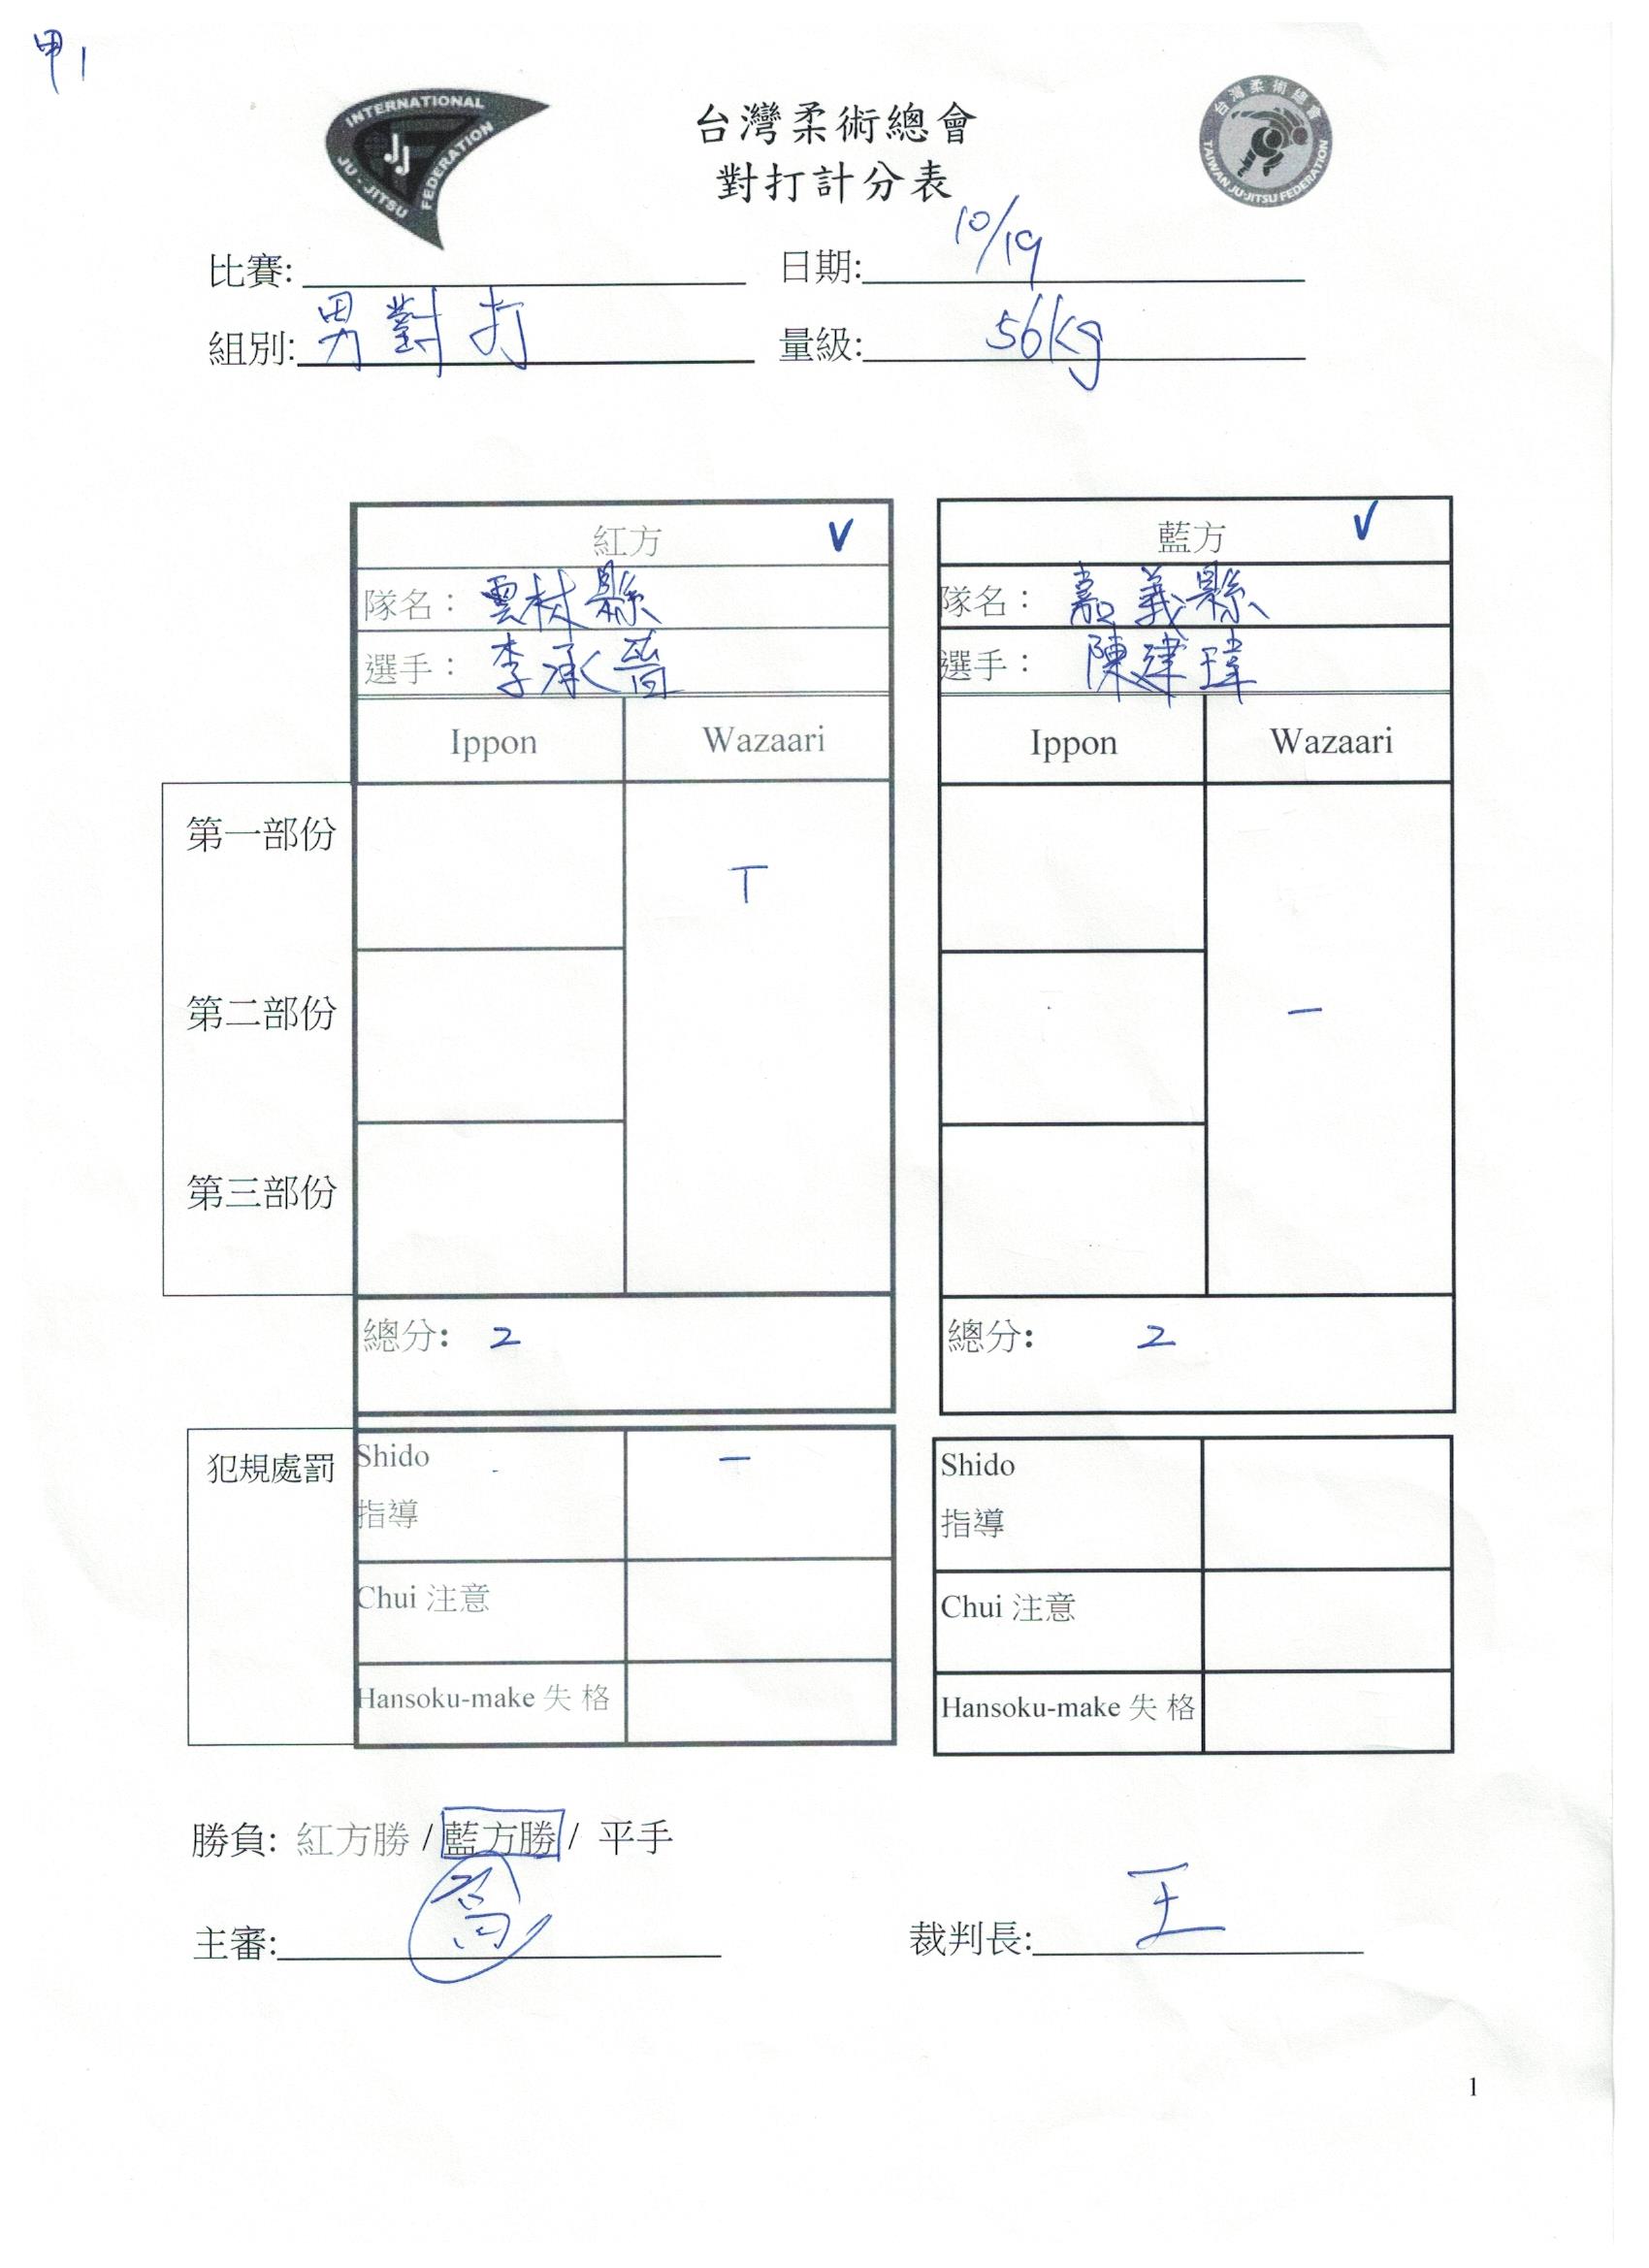 甲1
INTERNATIONAL
JU-JITSU
FEDERATION
JJ
台灣柔術總會
對打計分表
台灣柔術總會
TAIWAN JU-JITSU FEDERATION
比賽: 日期: 10/19
組別: 男對打 量級: 56kg
紅方 V 藍方 V
隊名： 雲林縣 隊名： 嘉義縣
選手： 李承晉 選手： 陳建瑋
Ippon Wazaari Ippon Wazaari
第一部份 T
第二部份 一
第三部份
總分: 2 總分: 2
犯規處罰 Shido 一 Shido
指導 指導
Chui 注意 Chui 注意
Hansoku-make 失 格 Hansoku-make 失 格
勝負: 紅方勝 / 藍方勝 / 平手
主審: 裁判長: 王
1